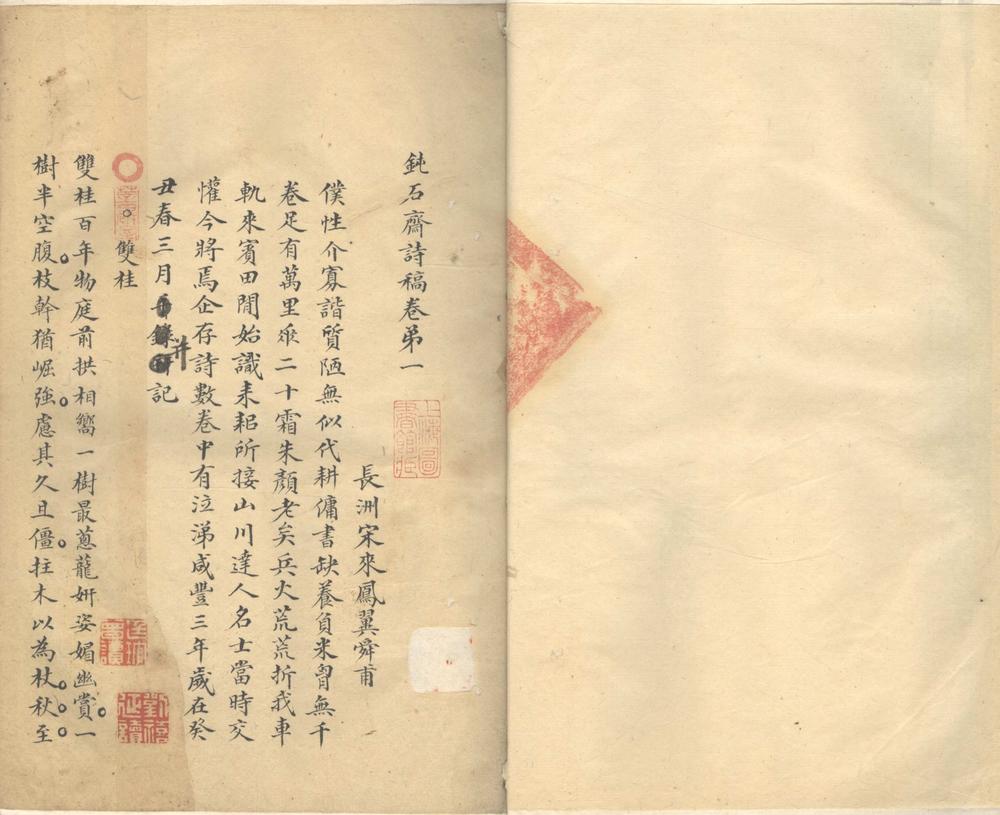 鈍石齋詩稿卷弟一
長洲宋來鳳翼舜甫
僕性介寡諧質陋無似代耕傭書缺養負米胷無千
卷足有萬里來二十霜朱顏老矣兵火荒荒折我車
軌來賓田閒始識耒耜所接山川達人名士當時交
懽今將焉企存詩數卷中有泣涕咸豐三年歲在癸
丑春三月并記
雙桂
雙桂百年物庭前拱相嚮一樹最蔥蘢妍姿媚幽賞一
樹半空腹枝幹猶崛強慮其久且僵拄木以為杖秋至
上海圖
書館藏